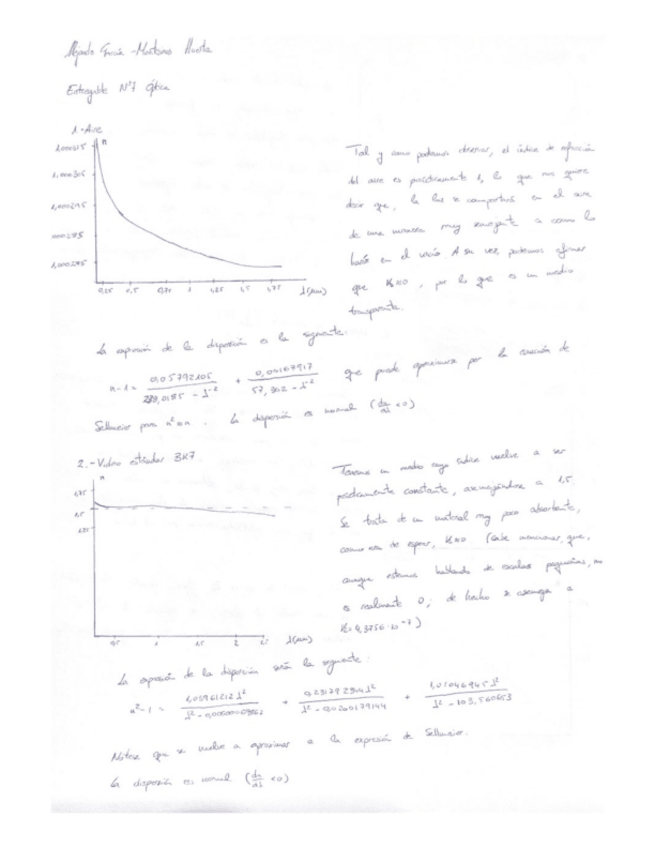 Entregable Nº7 Óptica
1.-Aire
n
1,000315
1,000305
1,000295
1,000275
0,25 0,5 0,75 1 1,25 1,5 1,75 λ(μm)
Tal y como podemos observar, el índice de refracción
del aire es prácticamente 1, lo que nos quiere
decir que, la luz se comportará en el aire
de una manera muy semejante a como lo
hará en el vacío. A su vez, podemos afirmar
que K≈0, por lo que es un medio
transparente.
La expresión de la dispersión es la siguiente:
n-1= 0,05792105 / 238,0185 - λ^-2 + 0,00167917 / 57,362 - λ^-2 que puede aproximarse por la ecuación de
Sellmeier para n²≈n. La dispersión es normal (dn/dλ <0)
2.-Vidrio estándar BK7
n
1,75
1,5
1,25
0,5 1 1,5 2 2,5 λ(μm)
Tenemos un medio cuyo índice vuelve a ser
prácticamente constante, asemejándose a 1,5.
Se trata de un material muy poco absorbente,
como era de esperar, K≈0 (cabe mencionar, que,
aunque estemos hablando de escalas pequeñas, no
es realmente 0; de hecho se asemeja a
K=9,3756·10^-7)
La expresión de la dispersión será la siguiente:
n²-1 = 1,03961212 λ² / + 0,231792344 λ² / λ² - 0,0200179144 + 1,01046945 λ² / λ² - 103,560653
Nótese que se vuelve a aproximar a la expresión de Sellmeier.
La dispersión es normal (dn/dλ <0)